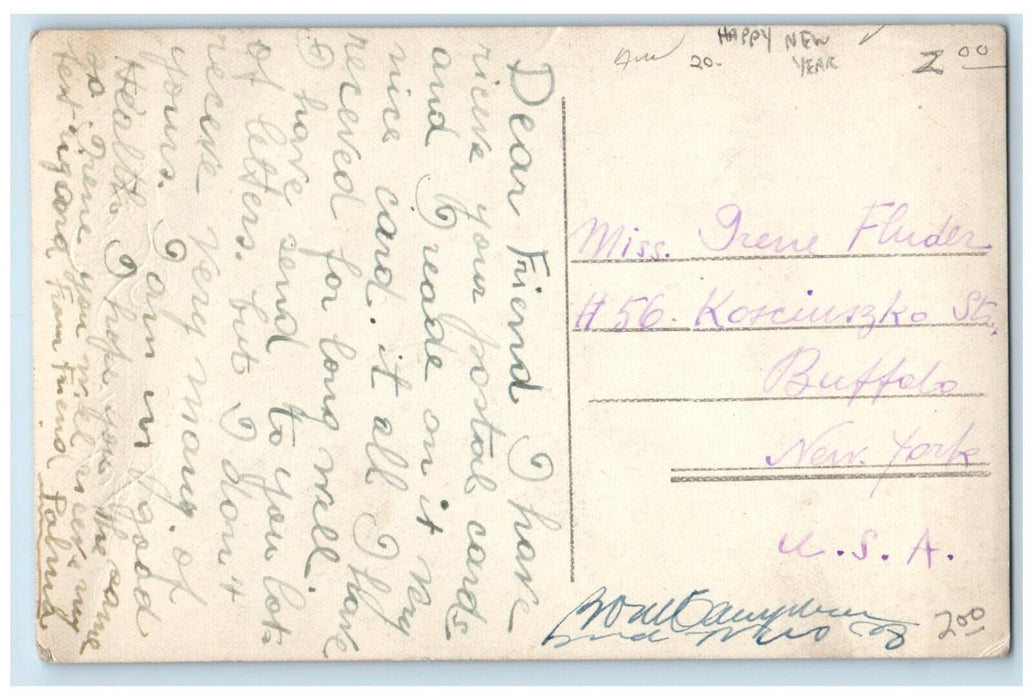 HAPPY NEW
YEAR
20-
2 00
Dear Friend I have
ricive your postal cards
and I reade on it very
nice card. it all I have
receved for long well.
I have send to you lot
of letters. but I dont
receve very many. of
yours. I am in good
Health. I hope you the same
so Irene you will my
From Friend
Miss. Irene Fluder
# 56. Kosciuszko Str.
Buffalo
New York
U. S. A.
2 00